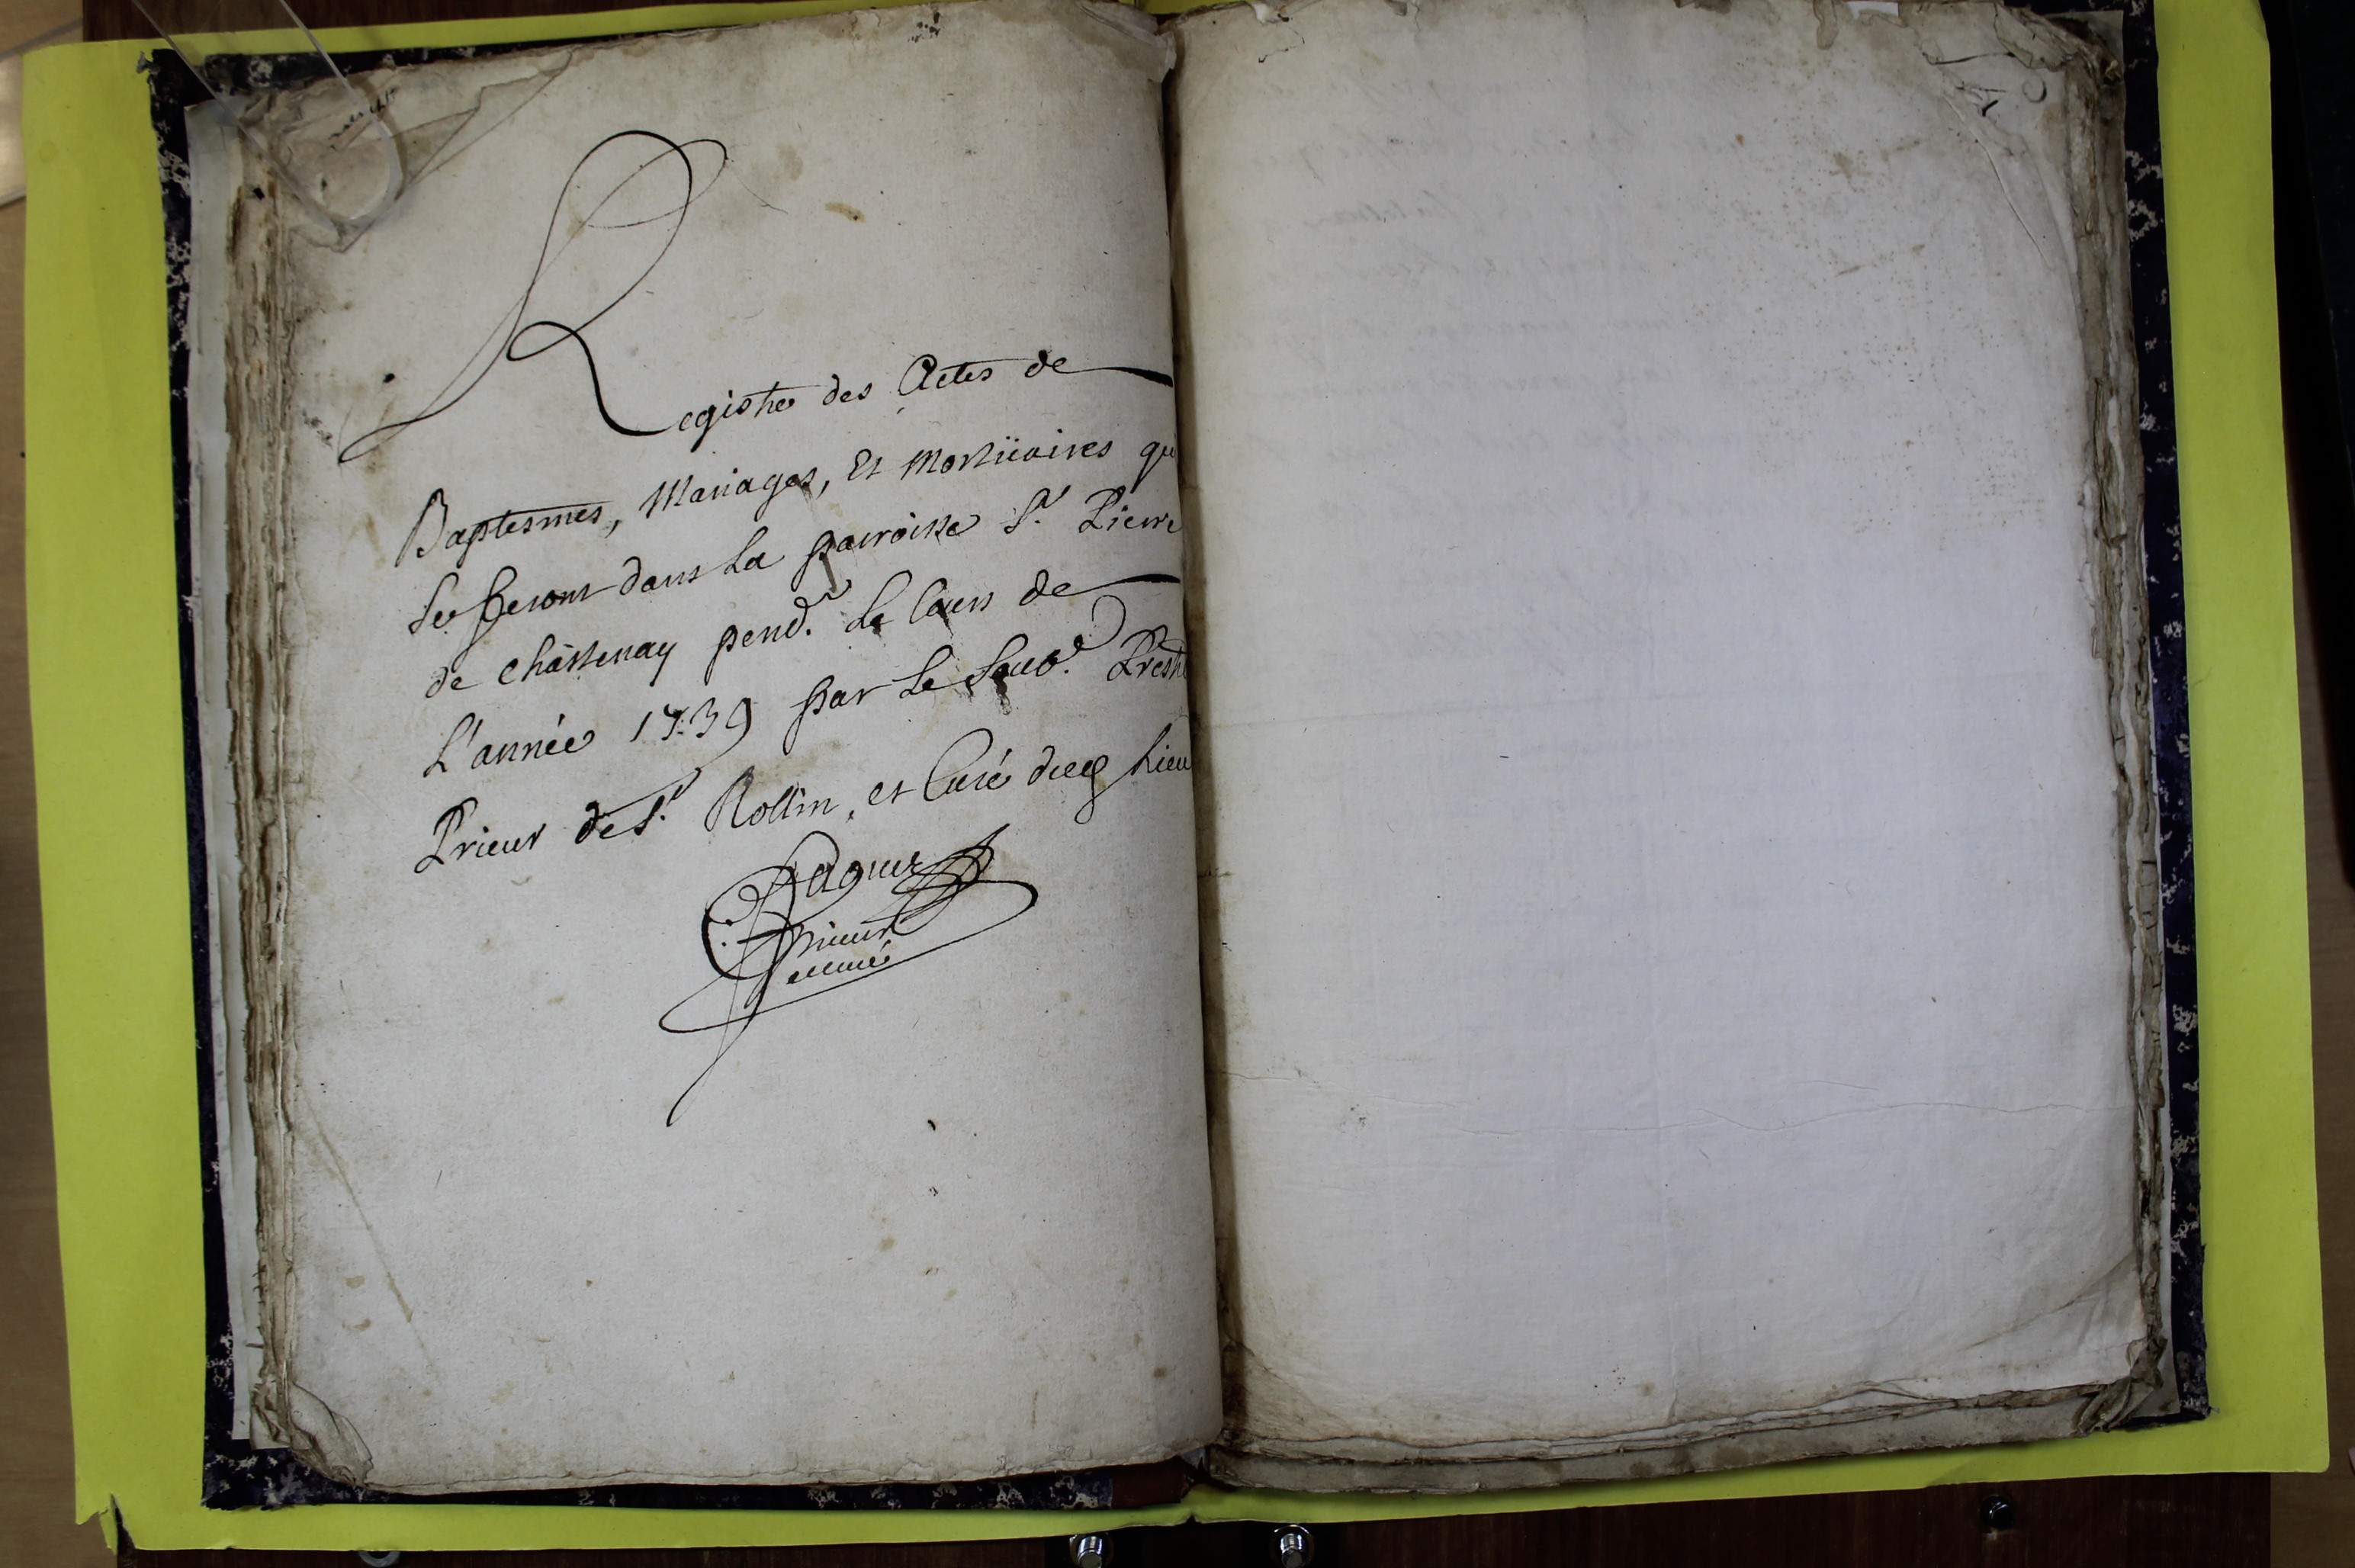 Registre des Actes de
Baptesmes, Mariages, Et Mortüaires qui
Se feront dans La parroisse St. Pierre
de Châstenay pendt. Le Cours de
L'année 1739 par Le Sousé. Prestre
Prieur de St. Rollin, et Curé dud Lieu
Prieur